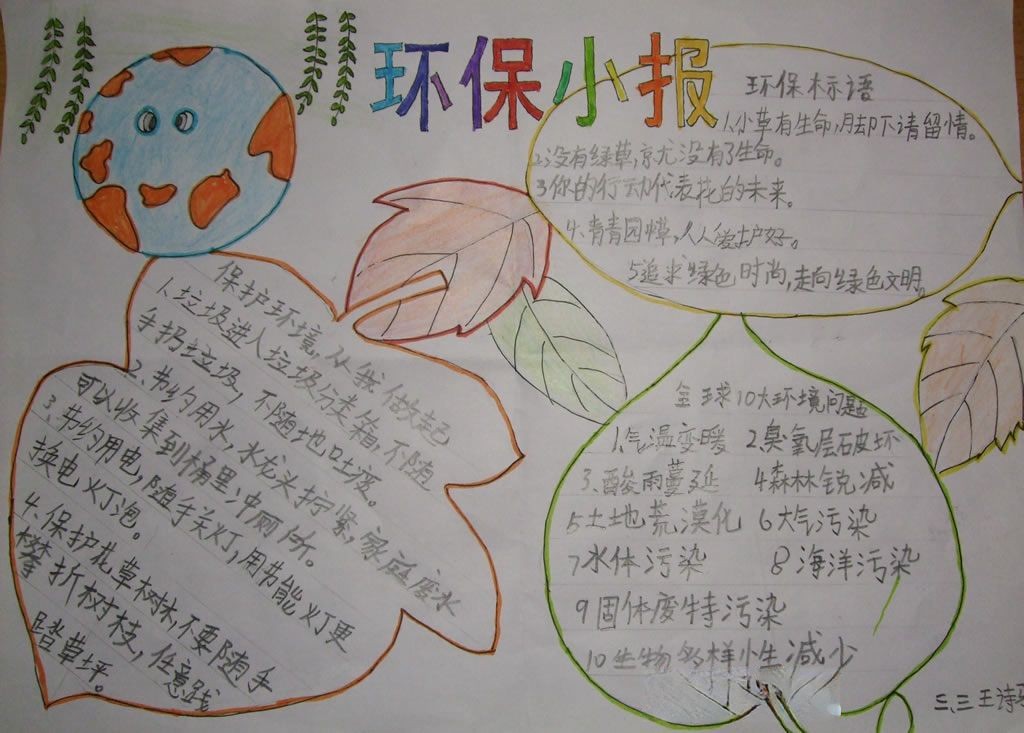 环保小报
环保标语
1.小草有生命,脚下请留情。
2.没有绿草,就没有了生命。
3你的行动代表花的未来。
4、青青园草,人人爱护好。
5追求绿色时尚,走向绿色文明。
保护环境,从我做起
1.垃圾进入垃圾分类箱,不随
手扔垃圾,不随地吐痰。
2.节约用水,水龙头拧紧,家庭废水
可以收集到桶里、冲厕所。
3.节约用电,随手关灯,用节能灯更
换电灯泡。
4.保护花草树木,不要随手
攀折树枝,任意践
踏草坪。
全球10大环境问题
1.气温变暖 2.臭氧层破坏
3.酸雨蔓延 4森林锐减
5土地荒漠化 6大气污染
7水体污染 8海洋污染
9固体废特污染
10生物多样性减少
三、三王诗